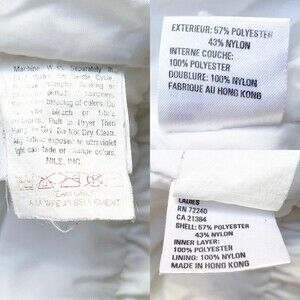 Machine Wash Separately in
Gentle Cycle.
bleeding of colors. Do
bleach or fabric
Fluff in Dryer Then
Hang To Dry. Do Not Dry Clean.
Any fabric exposed to ultraviolet
light can fade or change colors.
NILS, INC.
A LA VAPEUR SEULEMENT
EXTERIEUR: 57% POLYESTER
43% NYLON
INTERNE COUCHE:
100% POLYESTER
DOUBLURE: 100% NYLON
FABRIQUE AU HONG KONG
LADIES
RN 72240
CA 21384
SHELL: 57% POLYESTER
43% NYLON
INNER LAYER:
100% POLYESTER
LINING: 100% NYLON
MADE IN HONG KONG